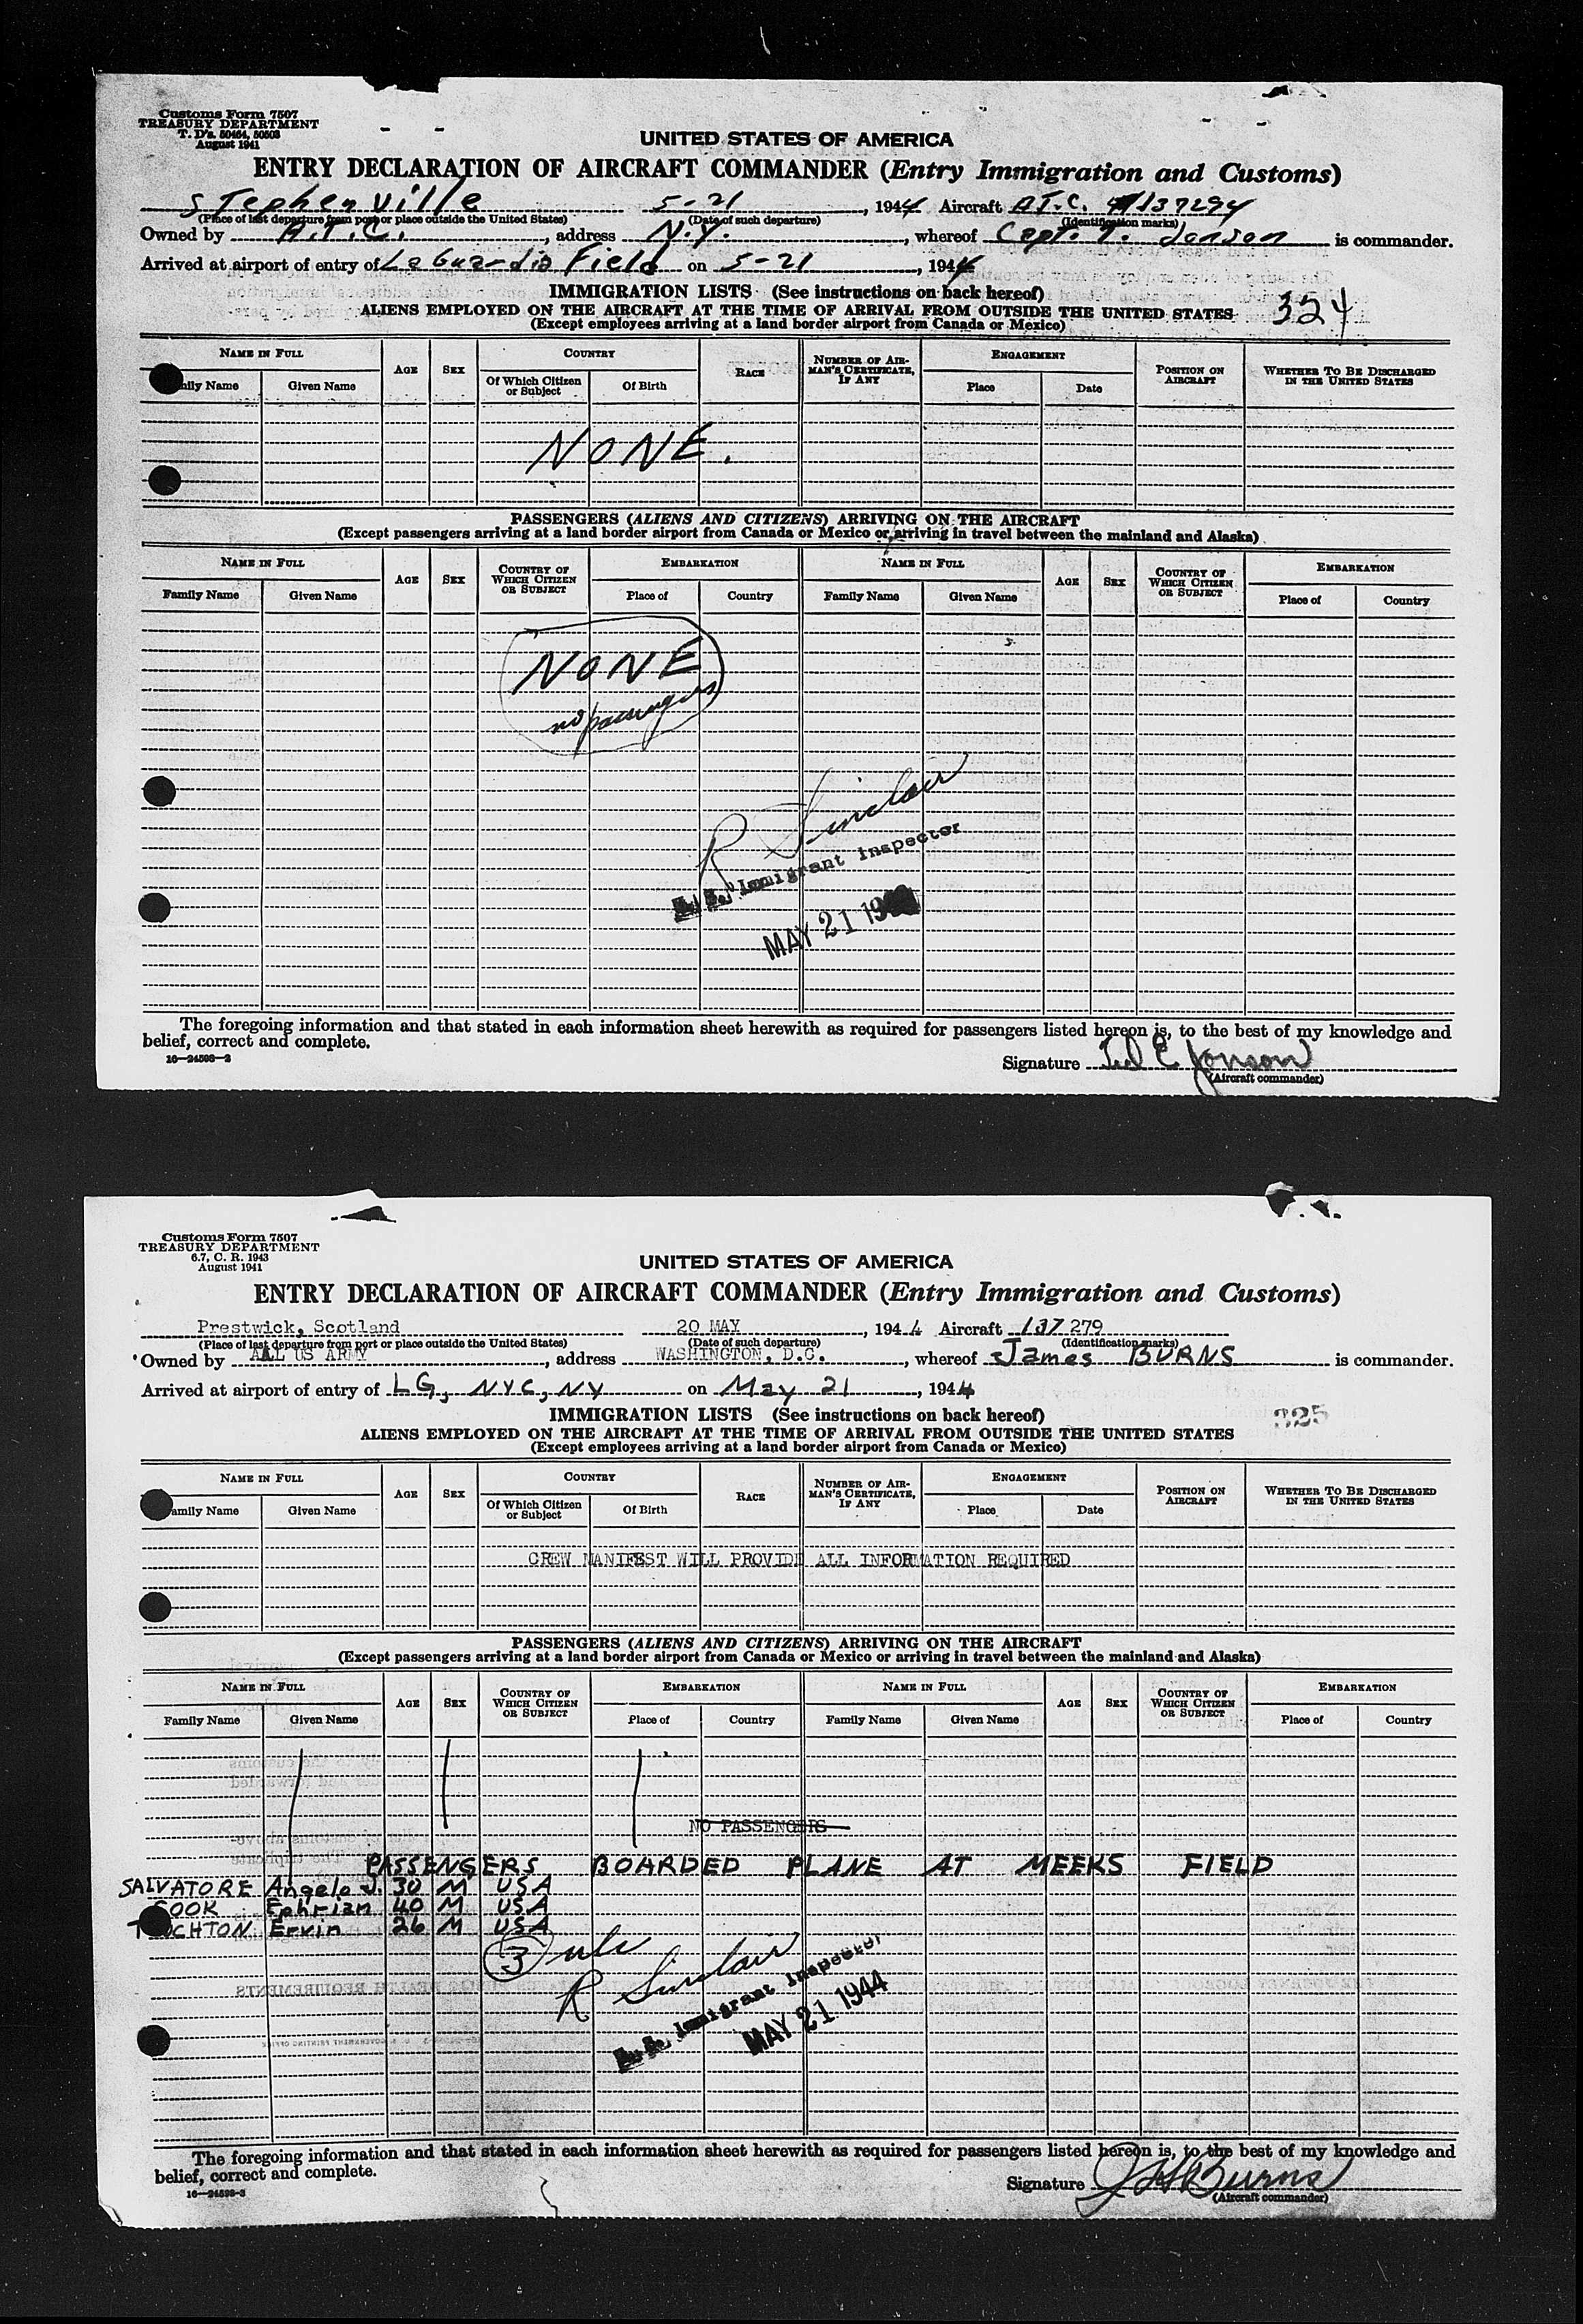 Customs Form 7507
TREASURY DEPARTMENT
T. D's. 50464, 50503
August 1941
UNITED STATES OF AMERICA
ENTRY DECLARATION OF AIRCRAFT COMMANDER (Entry Immigration and Customs)
STephenville 5-21, 1944 Aircraft A.T.C. 137294
(Place of last departure from port or place outside the United States) (Date of such departure) (Identification marks)
Owned by A.T.C., address N.Y., whereof Capt. T. Jonson is commander.
Arrived at airport of entry of La Guardia Field on 5-21, 1944
IMMIGRATION LISTS (See instructions on back hereof)
324
ALIENS EMPLOYED ON THE AIRCRAFT AT THE TIME OF ARRIVAL FROM OUTSIDE THE UNITED STATES
(Except employees arriving at a land border airport from Canada or Mexico)
NAME IN FULL AGE SEX COUNTRY RACE NUMBER OF AIRMAN'S CERTIFICATE, IF ANY ENGAGEMENT POSITION ON AIRCRAFT WHETHER TO BE DISCHARGED IN THE UNITED STATES
mily Name Given Name Of Which Citizen or Subject Of Birth Place Date
NONE.
PASSENGERS (ALIENS AND CITIZENS) ARRIVING ON THE AIRCRAFT
(Except passengers arriving at a land border airport from Canada or Mexico or arriving in travel between the mainland and Alaska)
NAME IN FULL AGE SEX COUNTRY OF WHICH CITIZEN OR SUBJECT EMBARKATION NAME IN FULL AGE SEX COUNTRY OF WHICH CITIZEN OR SUBJECT EMBARKATION
Family Name Given Name Place of Country Family Name Given Name Place of Country
NONE
no passengers
R Sinclair
Immigrant Inspector
MAY 21 19
The foregoing information and that stated in each information sheet herewith as required for passengers listed hereon is, to the best of my knowledge and
belief, correct and complete.
16—24598-2
Signature Ted E Jonson
(Aircraft commander)
Customs Form 7507
TREASURY DEPARTMENT
6.7, C. R. 1943
August 1941
UNITED STATES OF AMERICA
ENTRY DECLARATION OF AIRCRAFT COMMANDER (Entry Immigration and Customs)
Prestwick, Scotland 20 MAY, 1944 Aircraft 137 279
(Place of last departure from port or place outside the United States) (Date of such departure) (Identification marks)
Owned by AAL US ARMY, address WASHINGTON, D.C., whereof James BURNS is commander.
Arrived at airport of entry of LG, NYC, NY on May 21, 1944
IMMIGRATION LISTS (See instructions on back hereof)
325
ALIENS EMPLOYED ON THE AIRCRAFT AT THE TIME OF ARRIVAL FROM OUTSIDE THE UNITED STATES
(Except employees arriving at a land border airport from Canada or Mexico)
NAME IN FULL AGE SEX COUNTRY RACE NUMBER OF AIRMAN'S CERTIFICATE, IF ANY ENGAGEMENT POSITION ON AIRCRAFT WHETHER TO BE DISCHARGED IN THE UNITED STATES
amily Name Given Name Of Which Citizen or Subject Of Birth Place Date
CREW MANIFEST WILL PROVIDE ALL INFORMATION REQUIRED
PASSENGERS (ALIENS AND CITIZENS) ARRIVING ON THE AIRCRAFT
(Except passengers arriving at a land border airport from Canada or Mexico or arriving in travel between the mainland and Alaska)
NAME IN FULL AGE SEX COUNTRY OF WHICH CITIZEN OR SUBJECT EMBARKATION NAME IN FULL AGE SEX COUNTRY OF WHICH CITIZEN OR SUBJECT EMBARKATION
Family Name Given Name Place of Country Family Name Given Name Place of Country
NO PASSENGERS
PASSENGERS BOARDED PLANE AT MEEKS FIELD
SALVATORE Angelo J. 30 M USA
COOK Ephrian 40 M USA
Ervin 26 M USA
3
R Sinclair
Immigrant Inspector
MAY 21 1944
The foregoing information and that stated in each information sheet herewith as required for passengers listed hereon is, to the best of my knowledge and
belief, correct and complete.
16—24598-3
Signature JH Burns
(Aircraft commander)